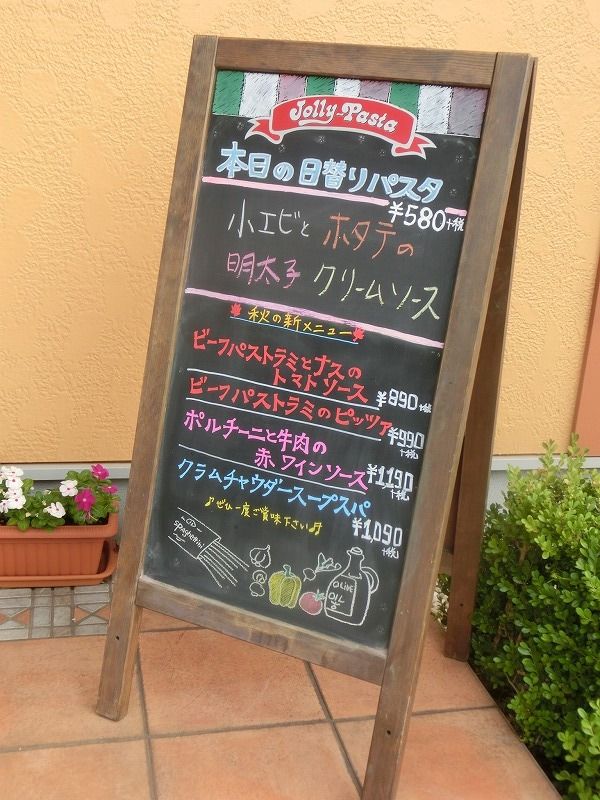 Jolly-Pasta
本日の日替りパスタ
¥580+税
小エビと ホタテの
明太子 クリームソース
秋の新メニュー
ビーフパストラミとナスの
トマトソース ¥890+税
ビーフパストラミのピッツァ
¥990+税
ポルチーニと牛肉の
赤ワインソース ¥1,190+税
クラムチャウダースープスパ
¥1,090+税
♪ぜひ一度ご賞味下さい♬
spaghettini
OLIVE
OIL